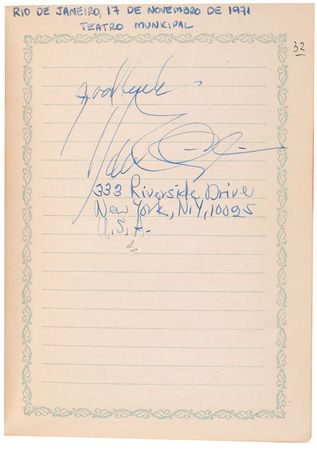 RIO DE JANEIRO, 17 DE NOVEMBRO DE 1971
TEATRO MUNICIPAL
32
Good luck
333 Riverside Drive
New York, N.Y, 10025
U.S.A.